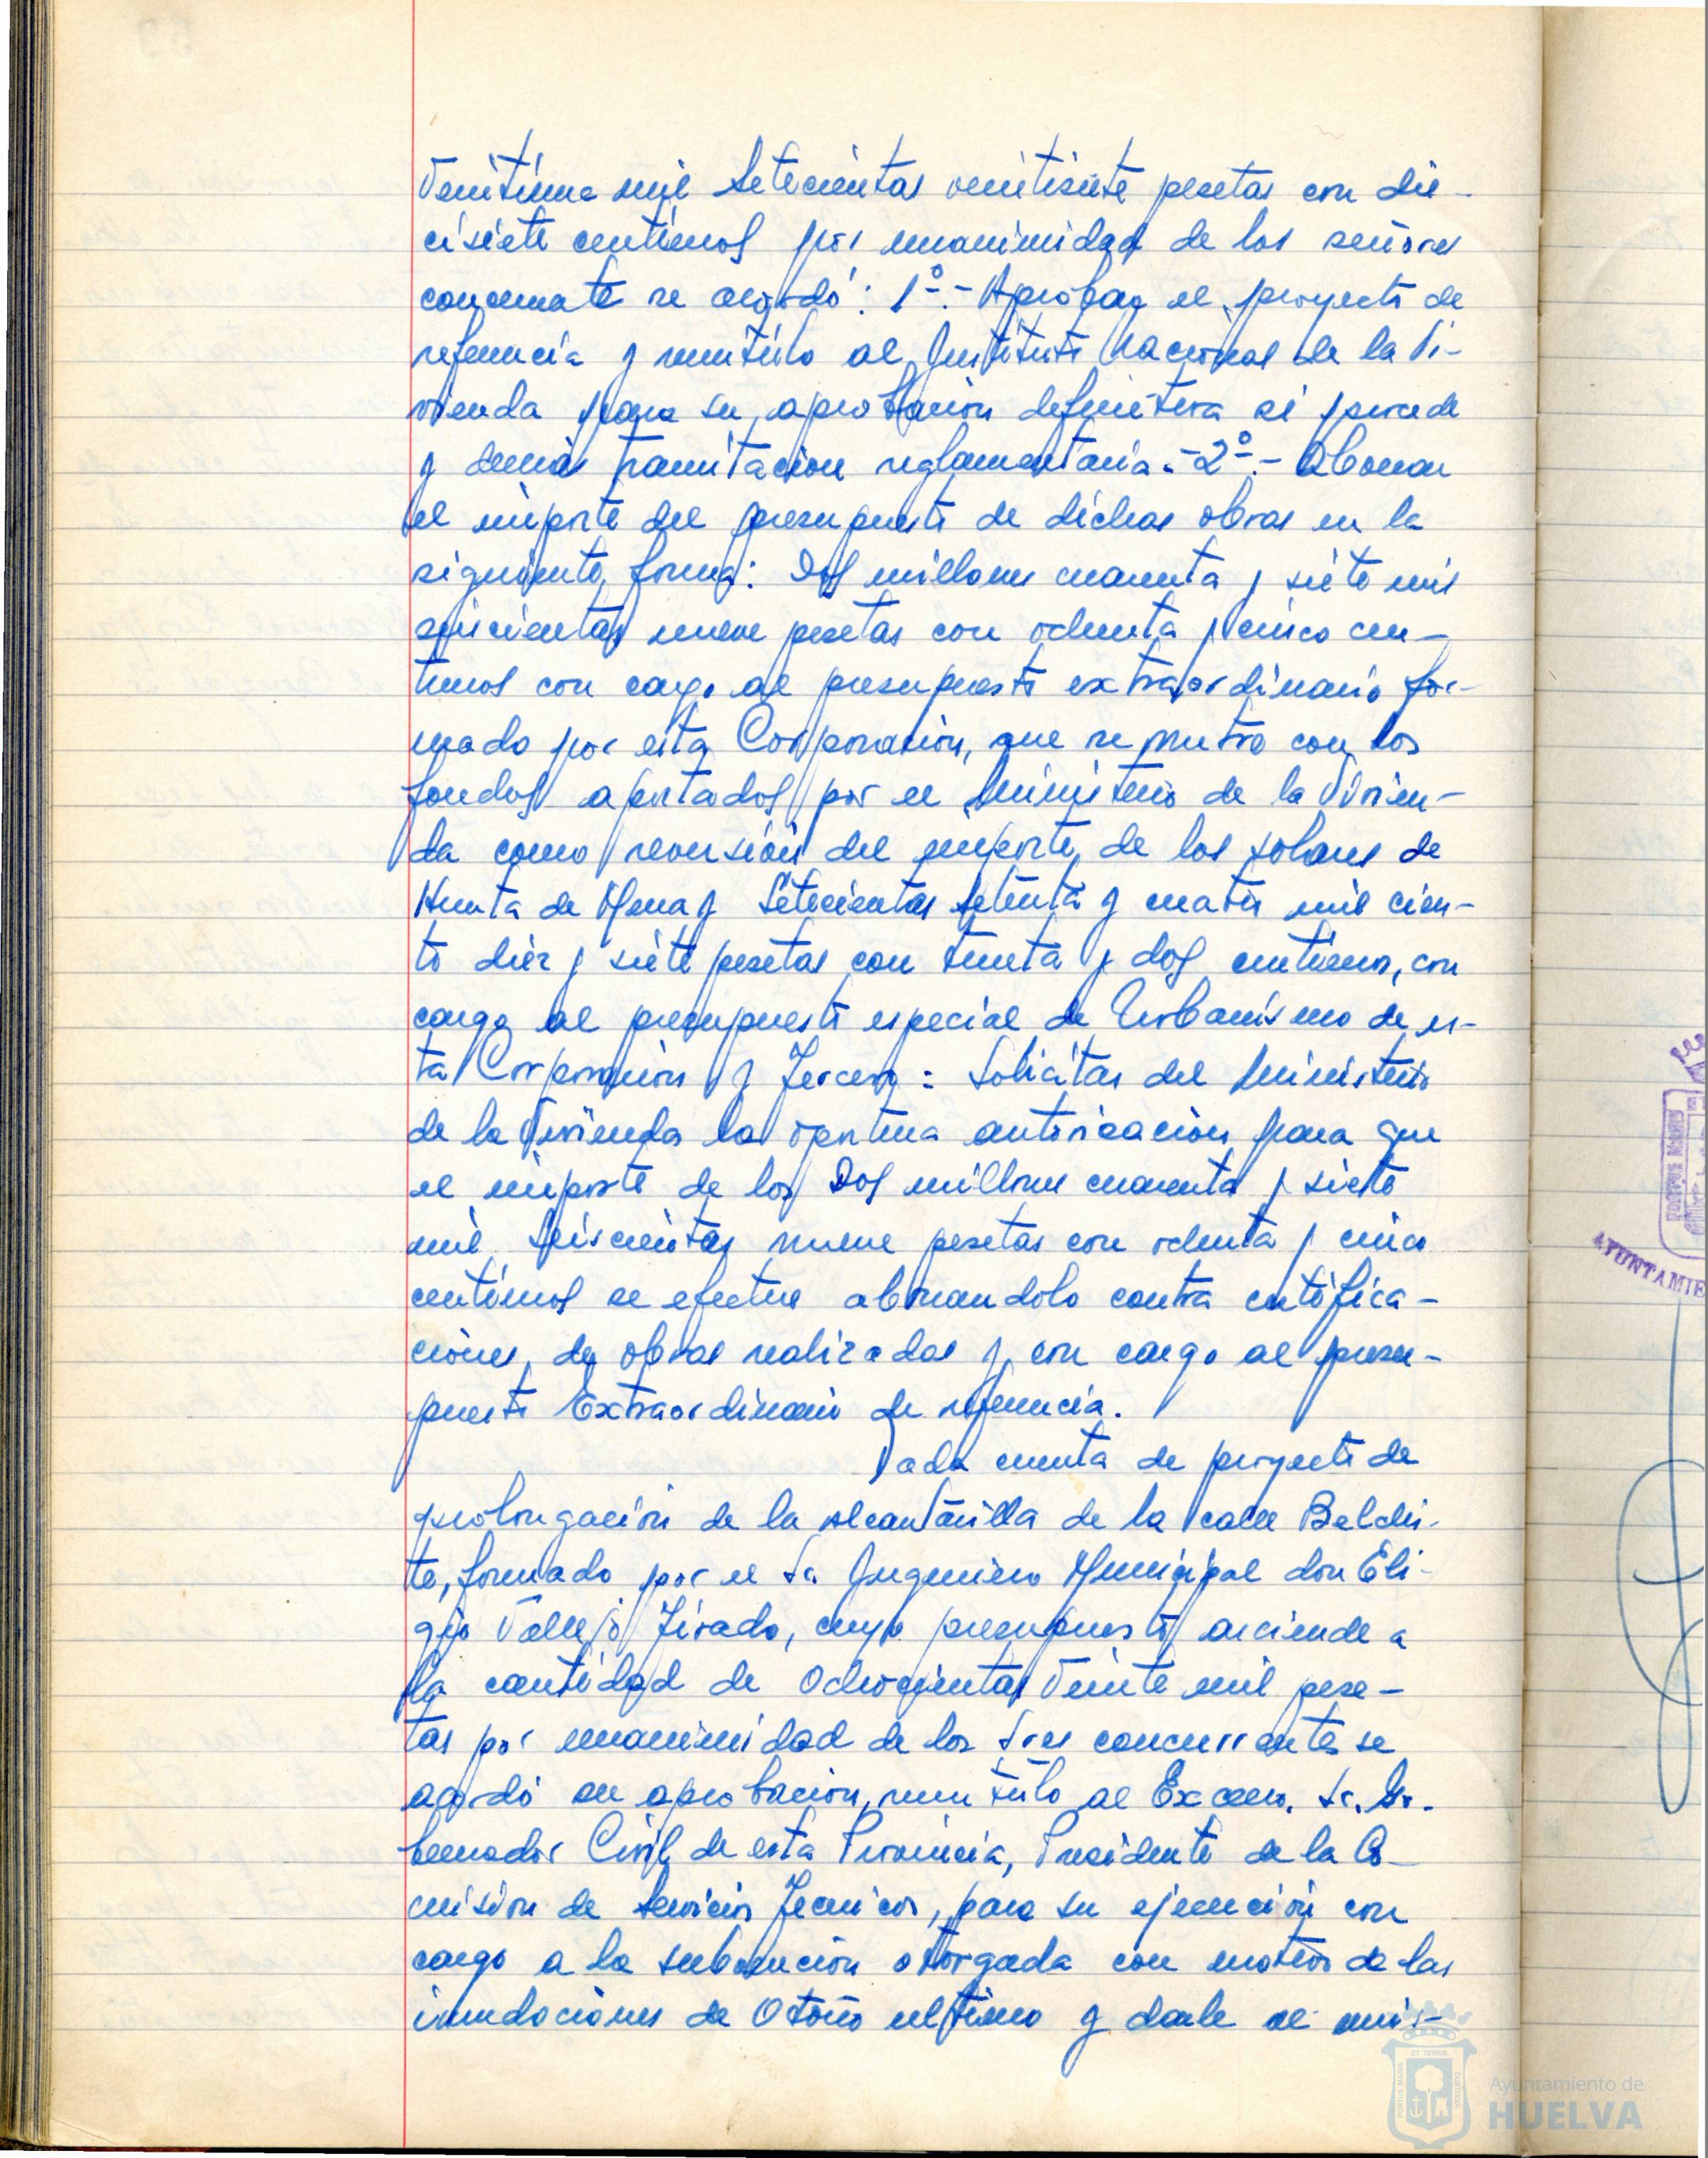 Veintiuna mil Setecientas veintisiete pesetas con die-
cisiete centimos por unanimidad de los señores
concurrente se acordó: 1º.- Aprobar el proyecto de
referencia y remitirlo al Instituto Nacional de la Vi-
vienda para su aprobación definitiva si procede
y demás tramitación reglamentaria.- 2º.- Abonar
el importe del presupuesto de dichas obras en la
siguiente forma: Dos millones cuarenta y siete mil
seiscientas nueve pesetas con ochenta y cinco cen-
timos con cargo al presupuesto extraordinario for-
mado por esta Corporación, que se nutre con los
fondos aportados por el Ministerio de la Vivien-
da como reversión del importe de los solares de
Huerta de Mena y Setecientas setenta y cuatro mil cien-
to diez y siete pesetas con treinta y dos centimos, con
cargo al presupuesto especial de Urbanismo de es-
ta Corporación y Tercero: Solicitar del Ministerio
de la Vivienda la oportuna autorización para que
el importe de los Dos millones cuarenta y siete
mil Seiscientas nueve pesetas con ochenta y cinco
centimos se efectue abonandolo contra certifica-
ciones, de obras realizadas y con cargo al presu-
puesto Extraordinario de referencia.
Dada cuenta de proyecto de
prolongación de la alcantarilla de la calle Belchi-
te, formado por el Sr. Ingeniero Municipal don Eli-
gio Vallejo Tirado, cuyo presupuesto asciende a
la cantidad de Ochocientas Veinte mil pese-
tas por unanimidad de los Sres concurrentes se
acordó su aprobación, remitirlo al Excmo. Sr. Go-
bernador Civil de esta Provincia, Presidente de la Co-
misión de Servicios Tecnicos, para su ejecución con
cargo a la subvención otorgada con motivo de las
inundaciones de Otoño ultimo y darle al mis-
PORTUS MARIS
AYUNTAMIE
Ayuntamiento de
HUELVA